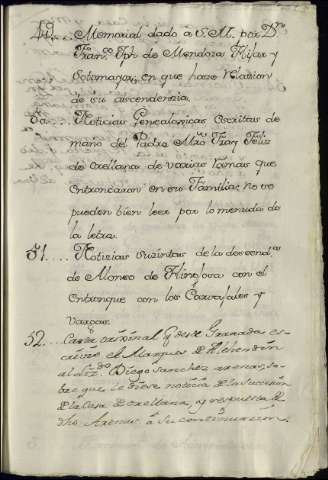 49.... Memorial dado a S.M. por Dn
Franco. Jph de Mendoza Hijar y
Sotamayor, en que hace relacion
de su ascendenzia.
50.... Noticias Genealogicas escritas de
mano del Padre Mro. Fray Feliz
de orellana de varias lineas que
entroncaron en su Familia; no se
pueden bien leer por lo menuda de
la letra.
51.... Noticias sueintas de la descendca.
de Alonso de Hinojosa con el
entronque con los Carvajales y
Vargas.
52... Carta original q desde Granada es-
crivió el Marques de
al Lizdo. Diego Sanchez arenas, so-
bre que le diese noticia de la sucesion
de la Casa de orellana, y respuesta de
dho Arenas a su continuacion.